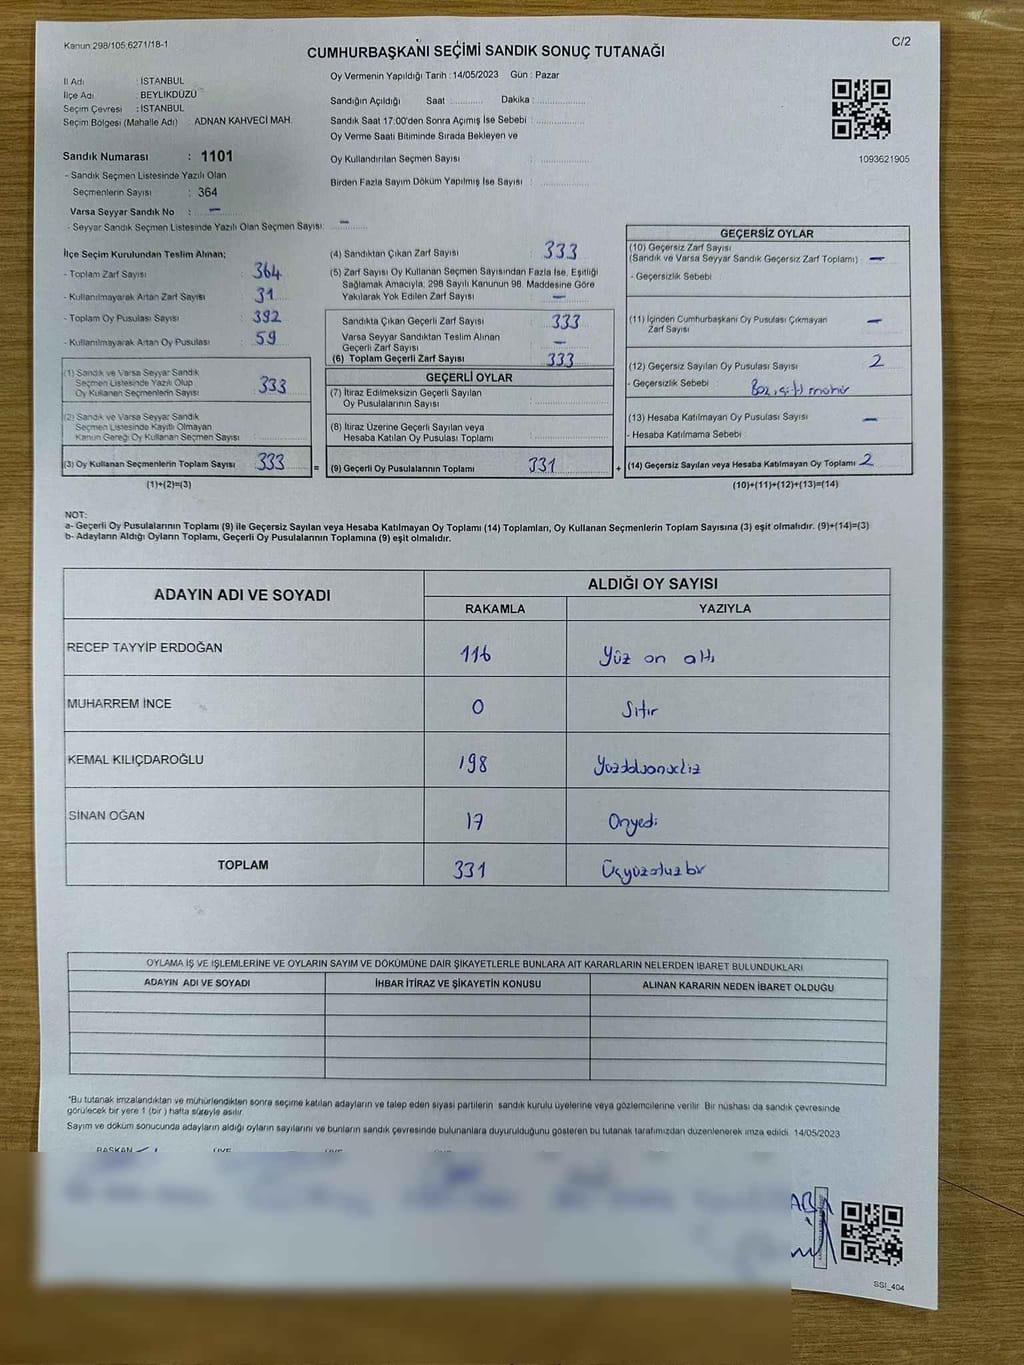 Kanun 298/105,6271/18-1
C/2
CUMHURBAŞKANI SEÇİMİ SANDIK SONUÇ TUTANAĞI
İl Adı : İSTANBUL
İlçe Adı : BEYLİKDÜZÜ
Seçim Çevresi : İSTANBUL
Seçim Bölgesi (Mahalle Adı) : ADNAN KAHVECİ MAH.
Sandık Numarası : 1101
- Sandık Seçmen Listesinde Yazılı Olan
Seçmenlerin Sayısı : 364
Varsa Seyyar Sandık No : –
- Seyyar Sandık Seçmen Listesinde Yazılı Olan Seçmen Sayısı: –
Oy Vermenin Yapıldığı Tarih : 14/05/2023 Gün : Pazar
Sandığın Açıldığı Saat : Dakika :
Sandık Saat 17:00'den Sonra Açımış İse Sebebi :
Oy Verme Saati Bitiminde Sırada Bekleyen ve
Oy Kullandırılan Seçmen Sayısı :
Birden Fazla Sayım Döküm Yapılmış İse Sayısı :
1093621905
İlçe Seçim Kurulundan Teslim Alınan;
- Toplam Zarf Sayısı : 364
- Kullanılmayarak Artan Zarf Sayısı : 31
- Toplam Oy Pusulası Sayısı : 392
- Kullanılmayarak Artan Oy Pusulası : 59
(1) Sandık ve Varsa Seyyar Sandık
Seçmen Listesinde Yazılı Olup
Oy Kullanan Seçmenlerin Sayısı : 333
(2) Sandık ve Varsa Seyyar Sandık
Seçmen Listesinde Kayıtlı Olmayan
Kanun Gereği Oy Kullanan Seçmen Sayısı :
(3) Oy Kullanan Seçmenlerin Toplam Sayısı : 333
(1)+(2)=(3)
=
(4) Sandıktan Çıkan Zarf Sayısı : 333
(5) Zarf Sayısı Oy Kullanan Seçmen Sayısından Fazla İse, Eşitliği
Sağlamak Amacıyla, 298 Sayılı Kanunun 98. Maddesine Göre
Yakılarak Yok Edilen Zarf Sayısı : –
Sandıkta Çıkan Geçerli Zarf Sayısı : 333
Varsa Seyyar Sandıktan Teslim Alınan
Geçerli Zarf Sayısı : –
(6) Toplam Geçerli Zarf Sayısı : 333
GEÇERLİ OYLAR
(7) İtiraz Edilmeksizin Geçerli Sayılan
Oy Pusulalarının Sayısı :
(8) İtiraz Üzerine Geçerli Sayılan veya
Hesaba Katılan Oy Pusulası Toplamı :
(9) Geçerli Oy Pusulalarının Toplamı : 331
+
GEÇERSİZ OYLAR
(10) Geçersiz Zarf Sayısı
(Sandık ve Varsa Seyyar Sandık Geçersiz Zarf Toplamı) : –
- Geçersizlik Sebebi :
(11) İçinden Cumhurbaşkanı Oy Pusulası Çıkmayan
Zarf Sayısı : –
(12) Geçersiz Sayılan Oy Pusulası Sayısı : 2
- Geçersizlik Sebebi : mühür
(13) Hesaba Katılmayan Oy Pusulası Sayısı : –
- Hesaba Katılmama Sebebi :
(14) Geçersiz Sayılan veya Hesaba Katılmayan Oy Toplamı : 2
(10)+(11)+(12)+(13)=(14)
NOT:
a- Geçerli Oy Pusulalarının Toplamı (9) ile Geçersiz Sayılan veya Hesaba Katılmayan Oy Toplamı (14) Toplamları, Oy Kullanan Seçmenlerin Toplam Sayısına (3) eşit olmalıdır. (9)+(14)=(3)
b- Adayların Aldığı Oyların Toplamı, Geçerli Oy Pusulalarının Toplamına (9) eşit olmalıdır.
ADAYIN ADI VE SOYADI
ALDIĞI OY SAYISI
RAKAMLA YAZIYLA
RECEP TAYYİP ERDOĞAN 116 Yüz on altı
MUHARREM İNCE 0 Sıfır
KEMAL KILIÇDAROĞLU 198
SİNAN OĞAN 17 Onyedi
TOPLAM 331 Üçyüzotuzbir
OYLAMA İŞ VE İŞLEMLERİNE VE OYLARIN SAYIM VE DÖKÜMÜNE DAİR ŞİKAYETLERLE BUNLARA AİT KARARLARIN NELERDEN İBARET BULUNDUKLARI
ADAYIN ADI VE SOYADI İHBAR İTİRAZ VE ŞİKAYETİN KONUSU ALINAN KARARIN NEDEN İBARET OLDUĞU
"Bu tutanak imzalandıktan ve mühürlendikten sonra seçime katılan adayların ve talep eden siyasi partilerin sandık kurulu üyelerine veya gözlemcilerine verilir. Bir nüshası da sandık çevresinde
görülecek bir yere 1 (bir) hafta süreyle asılır.
Sayım ve döküm sonucunda adayların aldığı oyların sayılarını ve bunların sandık çevresinde bulunanlara duyurulduğunu gösteren bu tutanak tarafımızdan düzenlenerek imza edildi. 14/05/2023
BAŞKAN ÜYE ÜYE
SSI_404